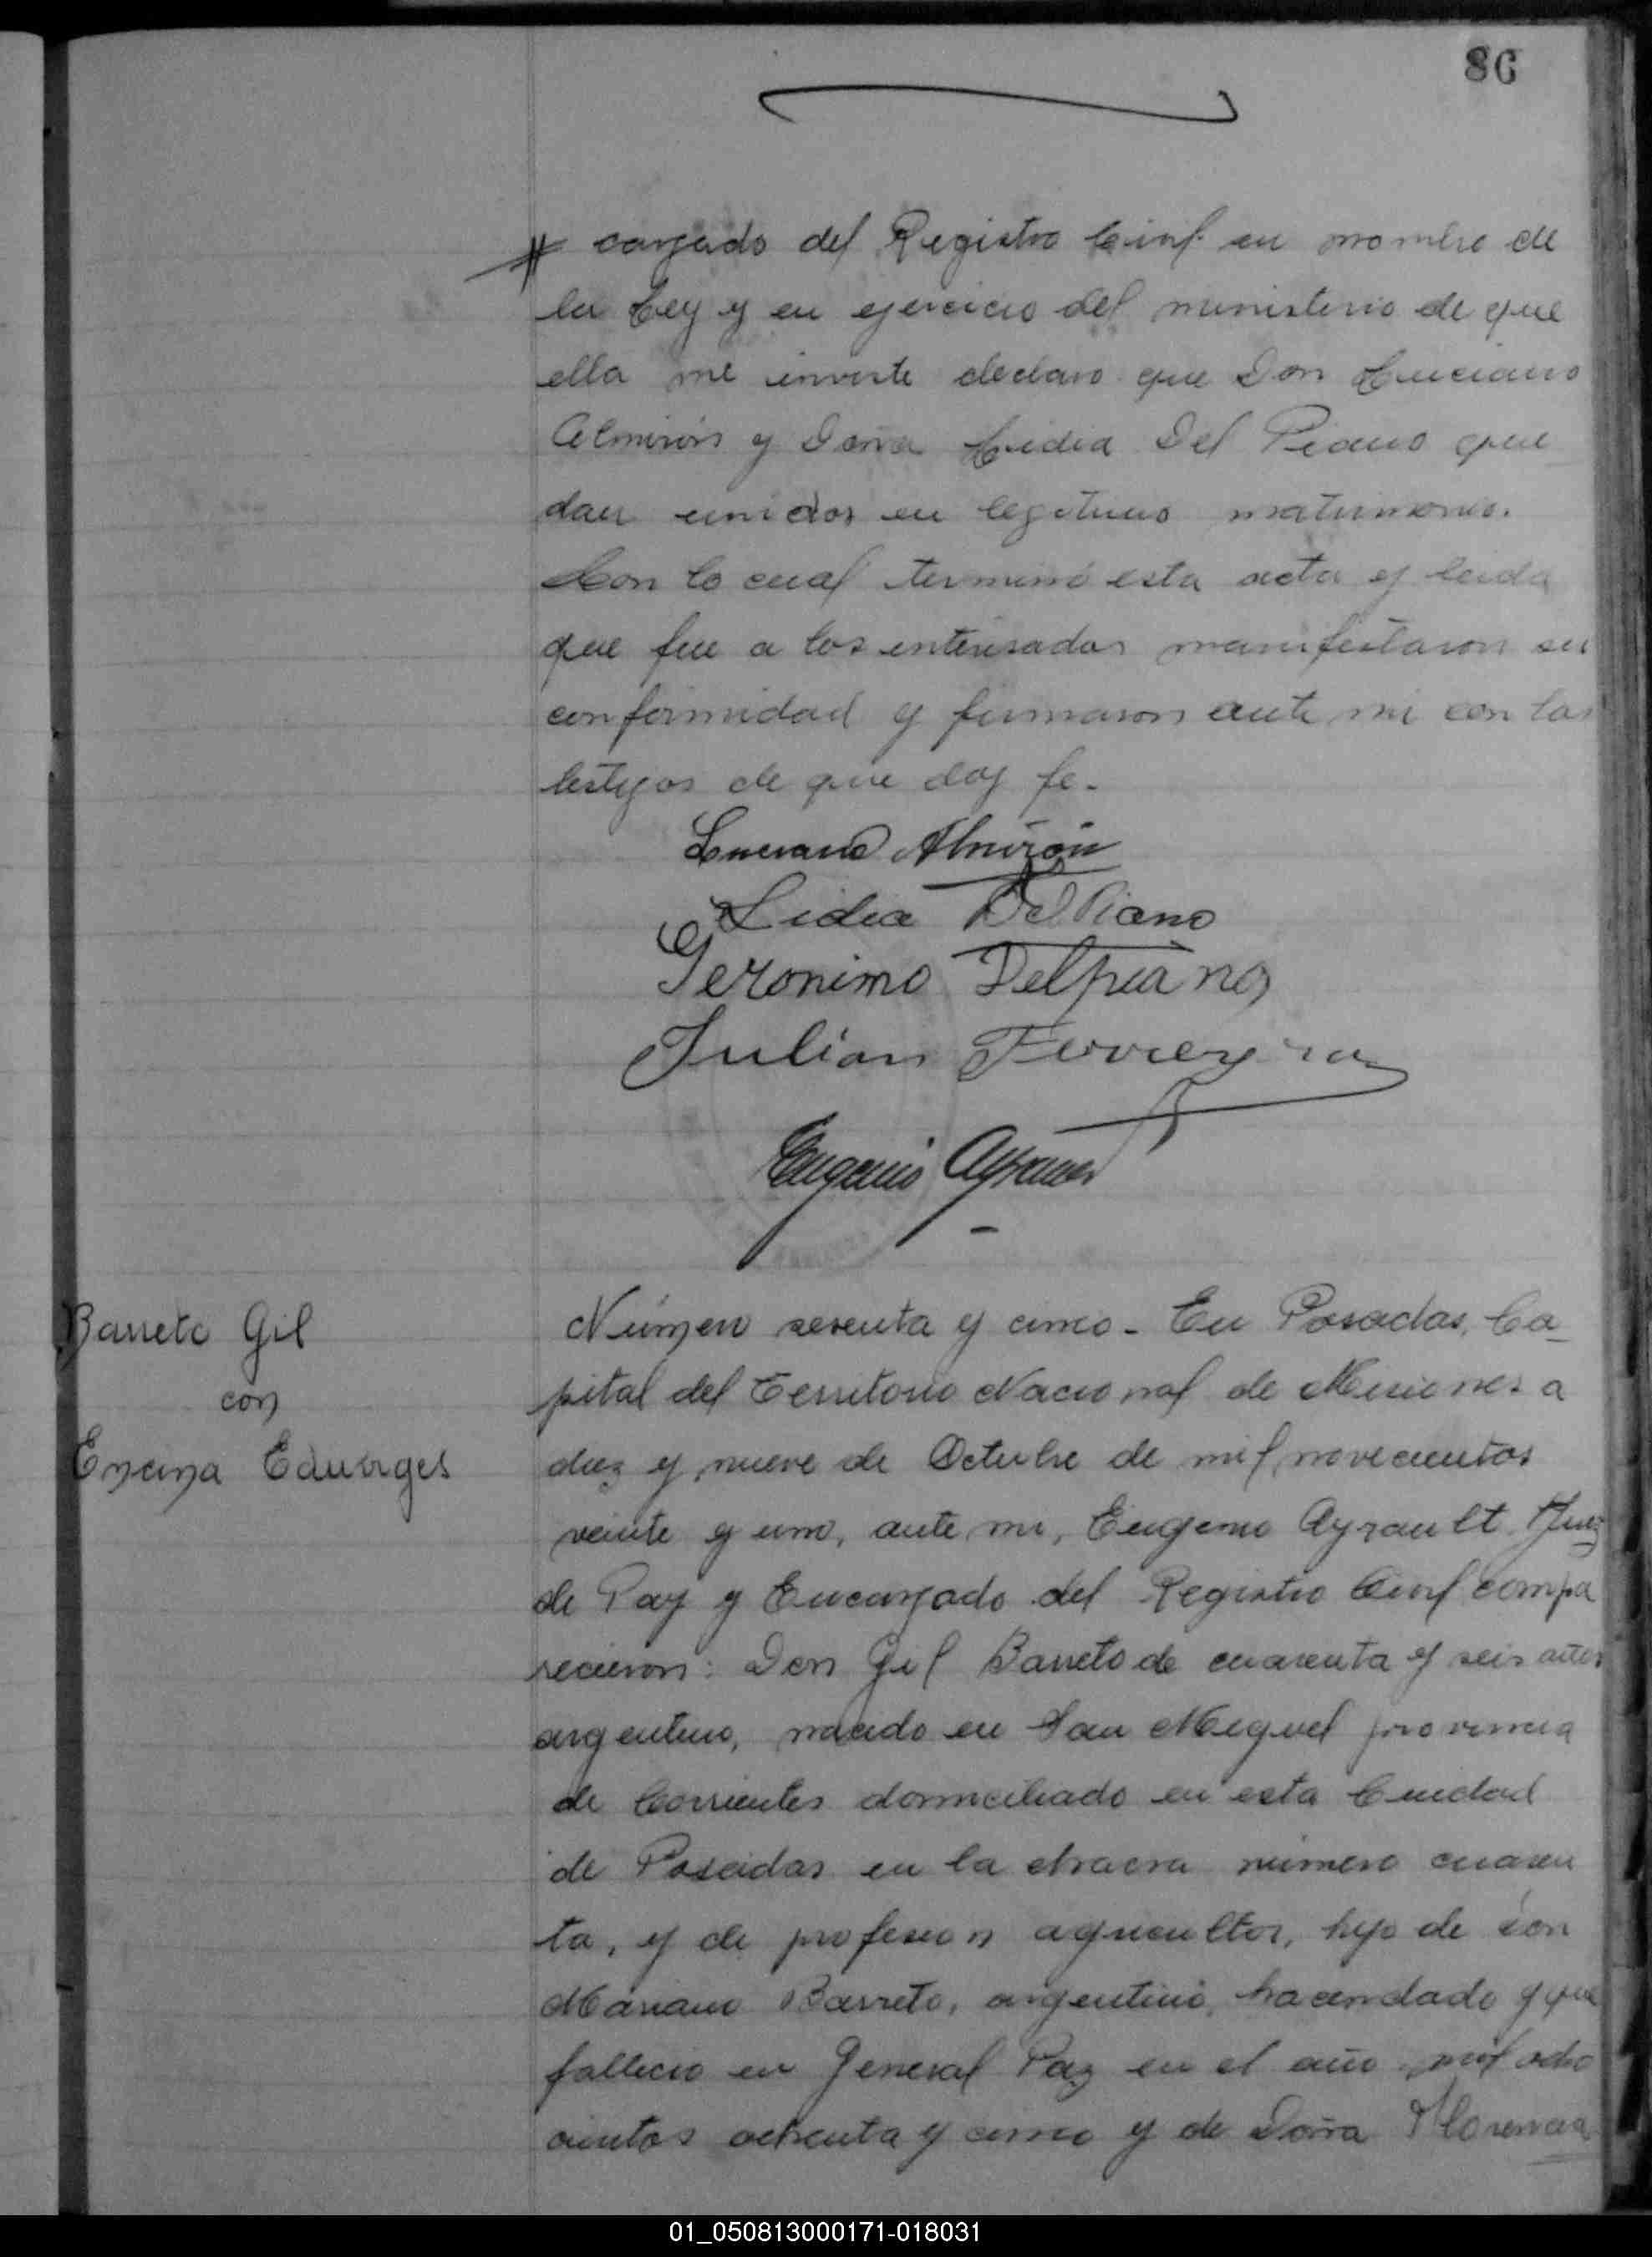 86
cargado del Registro Civil en nombre de
la Ley y en ejercicio del ministerio de que
ella me inviste declaro que Don Luciano
Almirón y Doña Lidia Del Piano que
dan unidos en legitimo matrimonio.
Con lo cual terminó esta acta y leida
que fue a los interesados manifestaron su
conformidad y firmaron ante mi con los
testigos de que doy fe.
Luciano Almirón
Lidia Del Piano
Geronimo Delpiano
Julian Ferreyra
Eugenio Ayrault
Barreto Gil
con
Encina Eduviges
Número sesenta y cinco - En Posadas, Ca-
pital del Territorio Nacional de Misiones a
diez y nueve de Octubre de mil novecientos
veinte y uno, ante mi, Eugenio Ayrault Juez
de Paz y Encargado del Registro Civil compa
recieron: Don Gil Barreto de cuarenta y seis años
argentino, nacido en San Miguel provincia
de Corrientes domiciliado en esta Ciudad
de Posadas en la chacra número cuaren
ta, y de profesion agricultor, hijo de don
Mariano Barreto, argentino, hacendado y que
fallecio en General Paz en el año mil ocho
cientos ochenta y cinco y de Doña Florencia
01_050813000171-018031